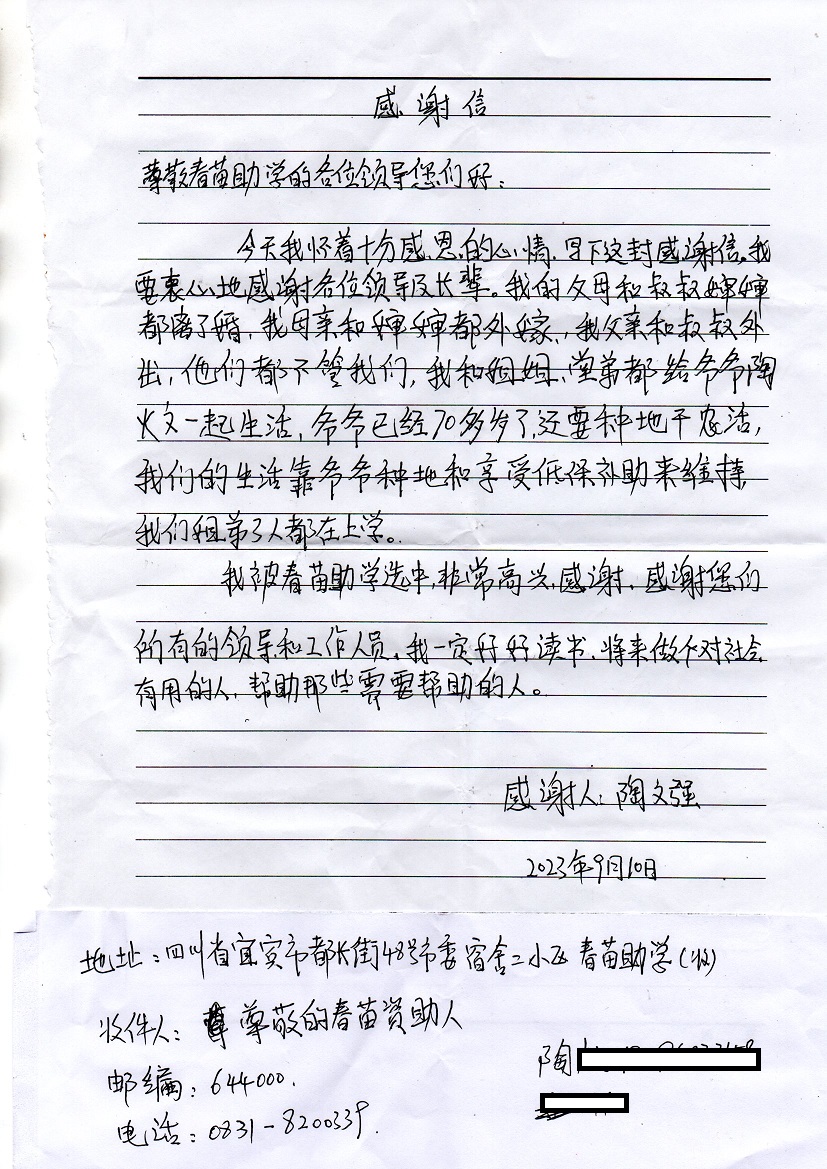 感谢信
尊敬春苗助学的各位领导您们好:
今天我怀着十分感恩的心情,写下这封感谢信,我
要衷心地感谢各位领导及长辈。我的父母和叔叔婶婶
都离了婚,我母亲和婶婶都外嫁,我父亲和叔叔外
出,他们都不管我们,我和姐姐、堂弟都给爷爷陶
火文一起生活,爷爷已经70多岁了,还要种地干农活,
我们的生活靠爷爷种地和享受低保补助来维持,
我们姐弟了人都在上学。
我被春苗助学选中,非常高兴,感谢、感谢您们
所有的领导和工作人员。我一定好好读书,将来做个对社会
有用的人,帮助那些需要帮助的人。
感谢人:陶文强
2023年9月10日
地址:四川省宜宾市都长街48号市委宿舍二小区春苗助学(收)
收件人:尊敬的春苗资助人
陶
邮编:644000.
电话:0831-8200339.